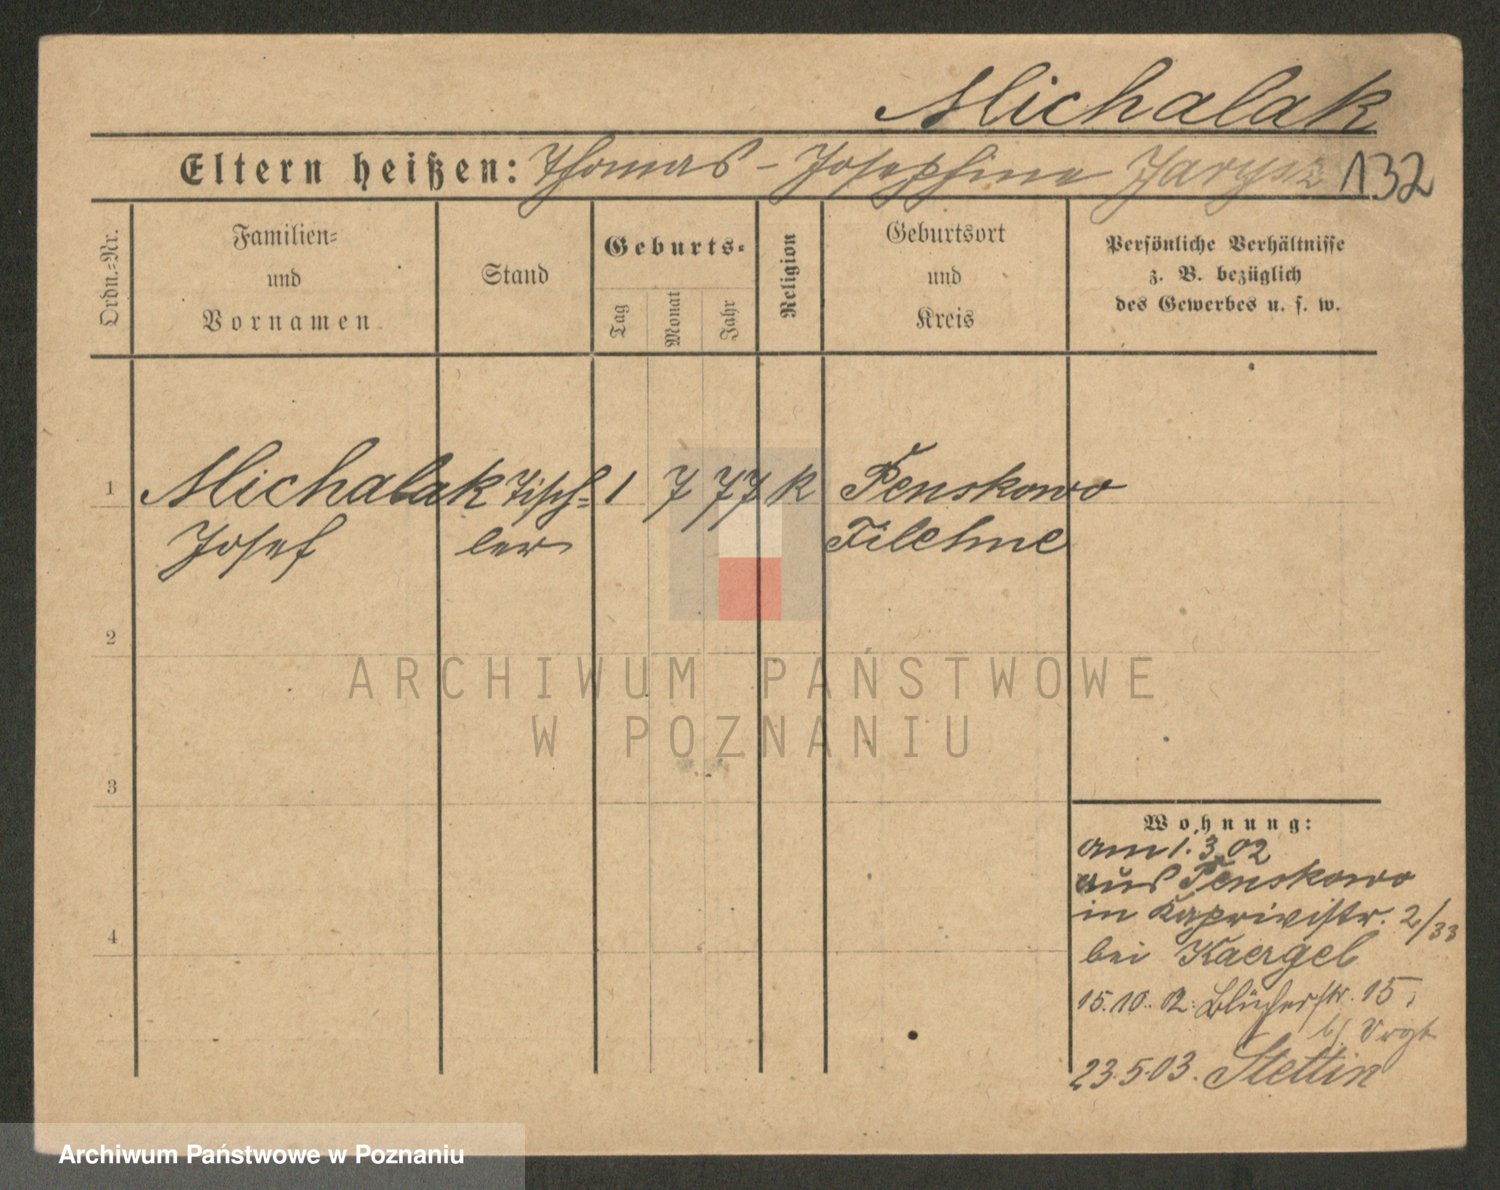 Michalak
Eltern heißen: Thomas – Josephine Jarysz 132
Ordn.=Nr.
Familien=
und
Vornamen
Stand
Geburts=
Tag
Monat
Jahr
Religion
Geburtsort
und
Kreis
Persönliche Verhältnisse
z. B. bezüglich
des Gewerbes u. s. w.
1 Michalak Tisch= 1 7 77 K Penskowo
Josef ler Filehne
2
ARCHIWUM PAŃSTWOWE
W POZNANIU
3
Wohnung:
am 1.3.02
aus Penskowo
in Kaprivistr. 2/33
4
bei Kaergel
15.10.02. Blücherstr. 15,
b/ Vogt
23.5.03. Stettin
Archiwum Państwowe w Poznaniu